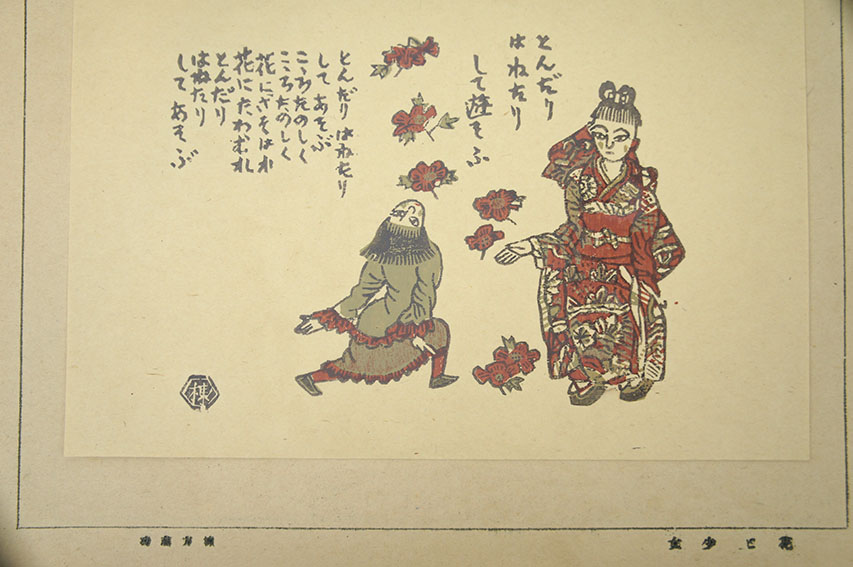 とんだり
はねたり
して遊そふ
とんだり はねたり
して あそぶ
こゝろたのしく
こゝろたのしく
花にさそはれ
花にたわむれ
とんだり
はねたり
してあそぶ
棟
花と少女
棟方志功